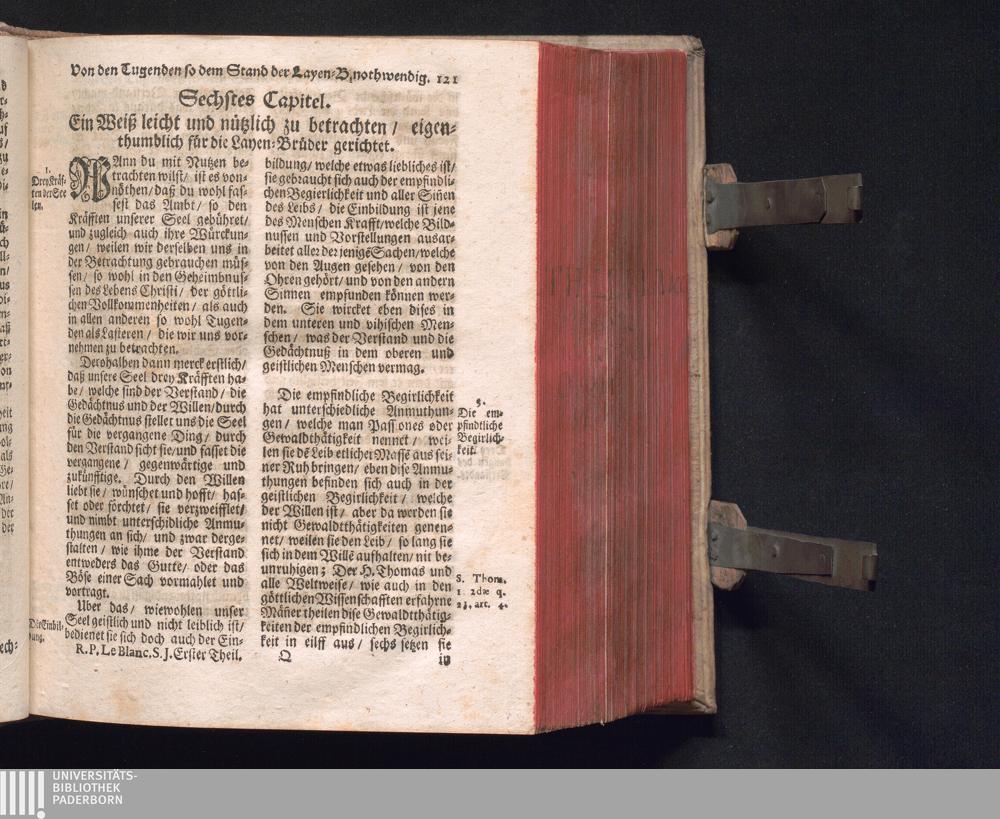 Von den Tugenden so dem Stand der Layen-B. nothwendig. 121
Sechstes Capitel.
Ein Weiß leicht und nützlich zu betrachten / eigen-
thumblich für die Layen-Brüder gerichtet.
1.
Drey Kräf-
ten der See
len.
WAnn du mit Nutzen be-
trachten wilst / ist es von-
nöthen / daß du wohl fas-
sest das Ambt / so den
Kräfften unserer Seel gebühret /
und zugleich auch ihre Würckun-
gen / weilen wir derselben uns in
der Betrachtung gebrauchen müs-
sen / so wohl in den Geheimbnus-
sen des Lebens Christi / der göttli-
chen Vollkommenheiten / als auch
in allen anderen so wohl Tugen-
den als Lasteren / die wir uns vor-
nehmen zu betrachten.
Derohalben dann merck erstlich /
daß unsere Seel drey Kräfften ha-
be / welche sind der Verstand / die
Gedächtnus und der Willen / durch
die Gedächtnus stellet uns die Seel
für die vergangene Ding / durch
den Verstand sicht sie / und fasset die
vergangene / gegenwärtige und
zukünfftige. Durch den Willen
liebt sie / wünschet und hofft / has-
set oder förchtet / sie verzweifflet /
und nimbt unterschidliche Anmu-
thungen an sich / und zwar derge-
stalten / wie ihme der Verstand
entweders das Gutte / oder das
Böse einer Sach vormahlet und
vortragt.
Die Einbil-
dung.
Uber das / wiewohlen unser
Seel geistlich und nicht leiblich ist /
bedienet sie sich doch auch der Ein-
R. P. Le Blanc, S. J. Erster Theil.
bildung / welche etwas liebliches ist /
sie gebraucht sich auch der empfindli-
chen Begierlichkeit und aller Siñen
des Leibs / die Einbildung ist jene
des Menschen Krafft / welche Bild-
nussen und Vorstellungen ausar-
beitet aller der jenigē Sachen / welche
von den Augen gesehen / von den
Ohren gehört / und von den andern
Sinnen empfunden können wer-
den. Sie wircket eben dises in
dem unteren und vihischen Men-
schen / was der Verstand und die
Gedächtnuß in dem oberen und
geistlichen Menschen vermag.
3.
Die em-
pfindtliche
Begirlich-
keit.
Die empfindliche Begirlichkeit
hat unterschiedliche Anmuthun-
gen / welche man Passiones oder
Gewaldthätigkeit nennet / wei-
len sie dē Leib etlicher Massē aus sei-
ner Ruh bringen / eben dise Anmu-
thungen befinden sich auch in der
geistlichen Begirlichkeit / welche
der Willen ist / aber da werden sie
nicht Gewaldtthätigkeiten genen-
net / weilen sie den Leib / so lang sie
sich in dem Willē aufhalten / nit be-
unruhigen; Der H. Thomas und
alle Weltweise / wie auch in den
göttlichen Wissenschafften erfahrne
Mäñer theilen dise Gewaldtthätig-
keiten der empfindlichen Begirlich-
keit in eilff aus / sechs setzen sie
S. Thom.
1. 2dæ q.
23. art. 4.
Q
in
UNIVERSITÄTS-
BIBLIOTHEK
PADERBORN